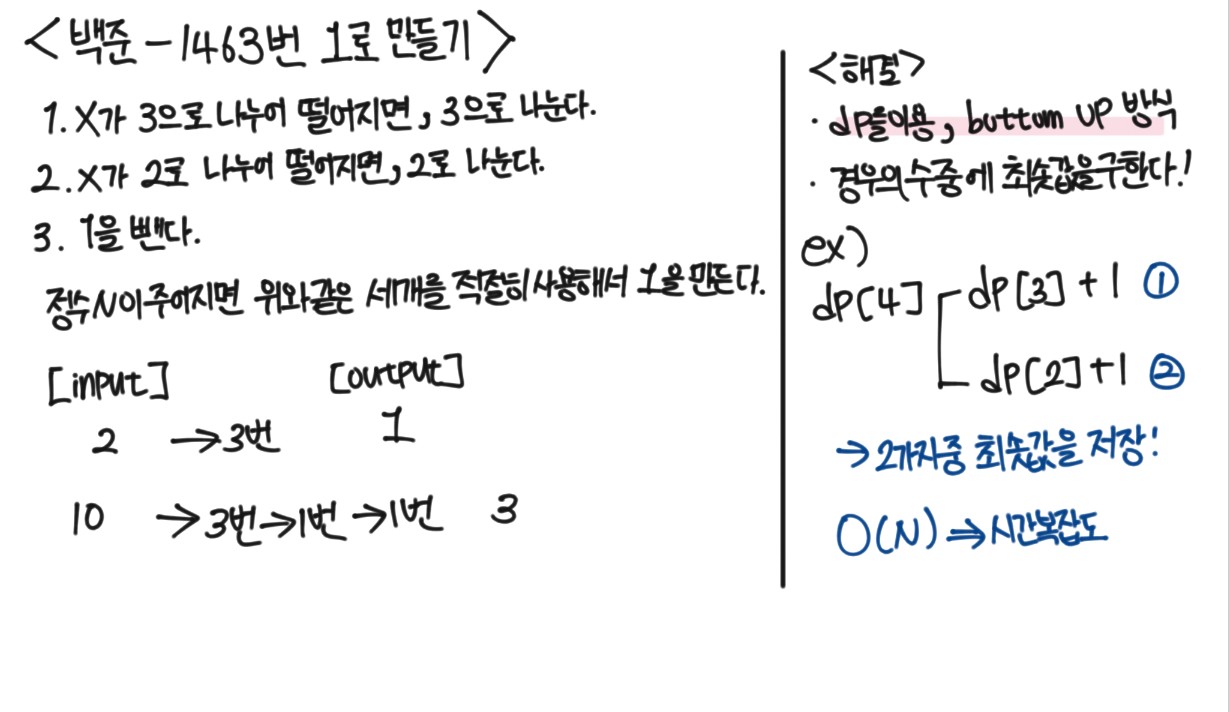 <백준 - 1463번 1로 만들기>
1. X가 3으로 나누어 떨어지면, 3으로 나눈다.
2. X가 2로 나누어 떨어지면, 2로 나눈다.
3. 1을 뺀다.
정수 N이 주어지면 위와 같은 세개를 적절히 사용해서 1을 만든다.
[input] [output]
2 → 3번 1
10 → 3번 → 1번 → 1번 3
<해결>
· dp을 이용, buttom UP 방식
· 경우의 수 중에 최솟값을 구한다!
ex)
dp[4] dp[3]+1 ①
dp[2]+1 ②
→ 2가지 중 최솟값을 저장!
O(N) ⇒ 시간복잡도